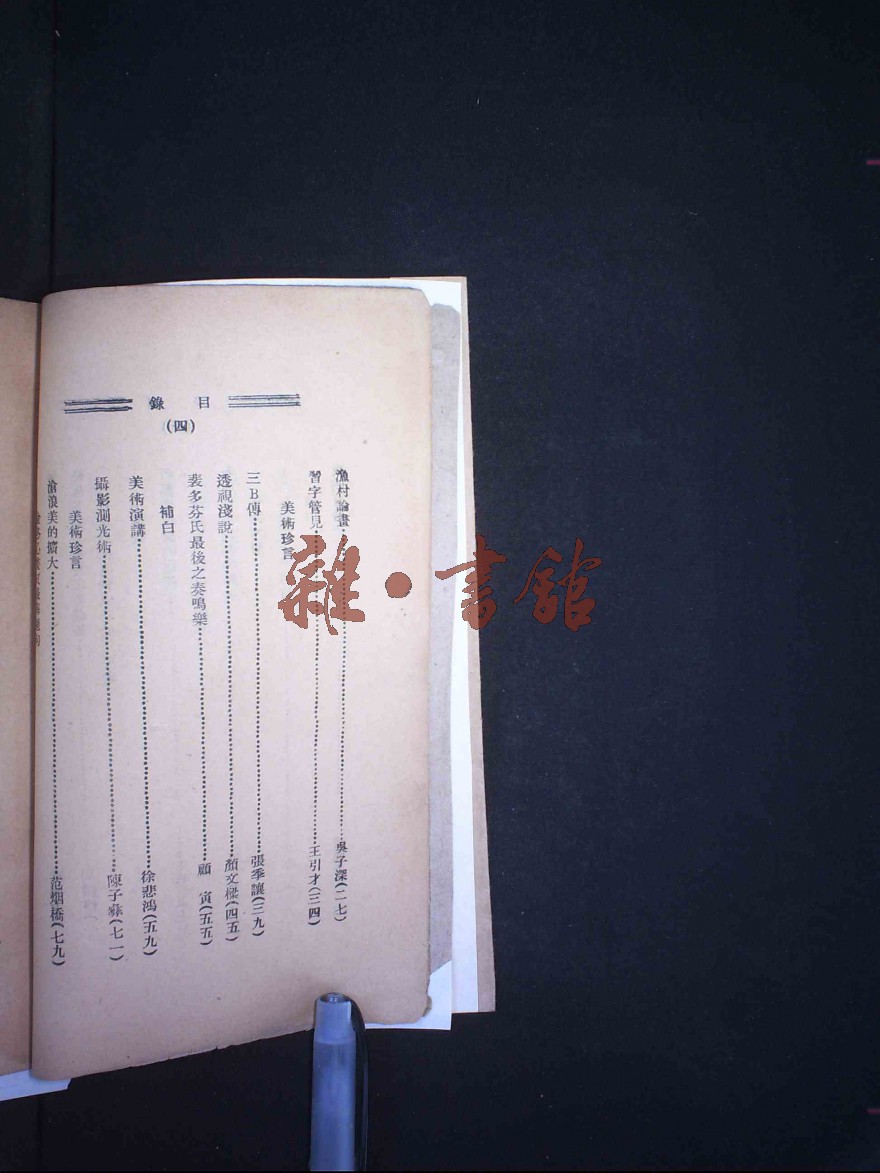 目錄
(四)
漁村論畫……吳子深(二七)
習字管見……王引才(三四)
美術珍言
三B傳……張季讓(三九)
透視淺說……顏文樑(四五)
裴多芬氏最後之奏鳴樂……顧 寅(五五)
補白
美術演講……徐悲鴻(五九)
攝影測光術……陳子彝(七一)
美術珍言
滄浪美的擴大……范烟橋(七九)
雜·書館